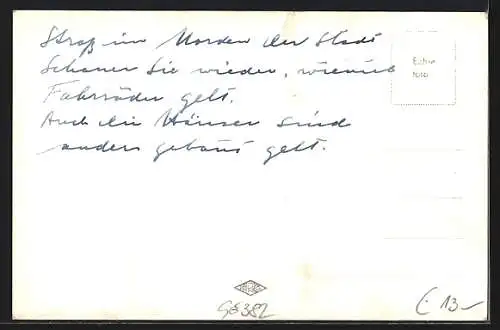 Straß im Norden der Stadt
Schauen Sie wieder, wieviel
Fahrräder gelt.
Auch die Häuser sind
anders gebaut gelt.
Echte
Foto
GE382
13-